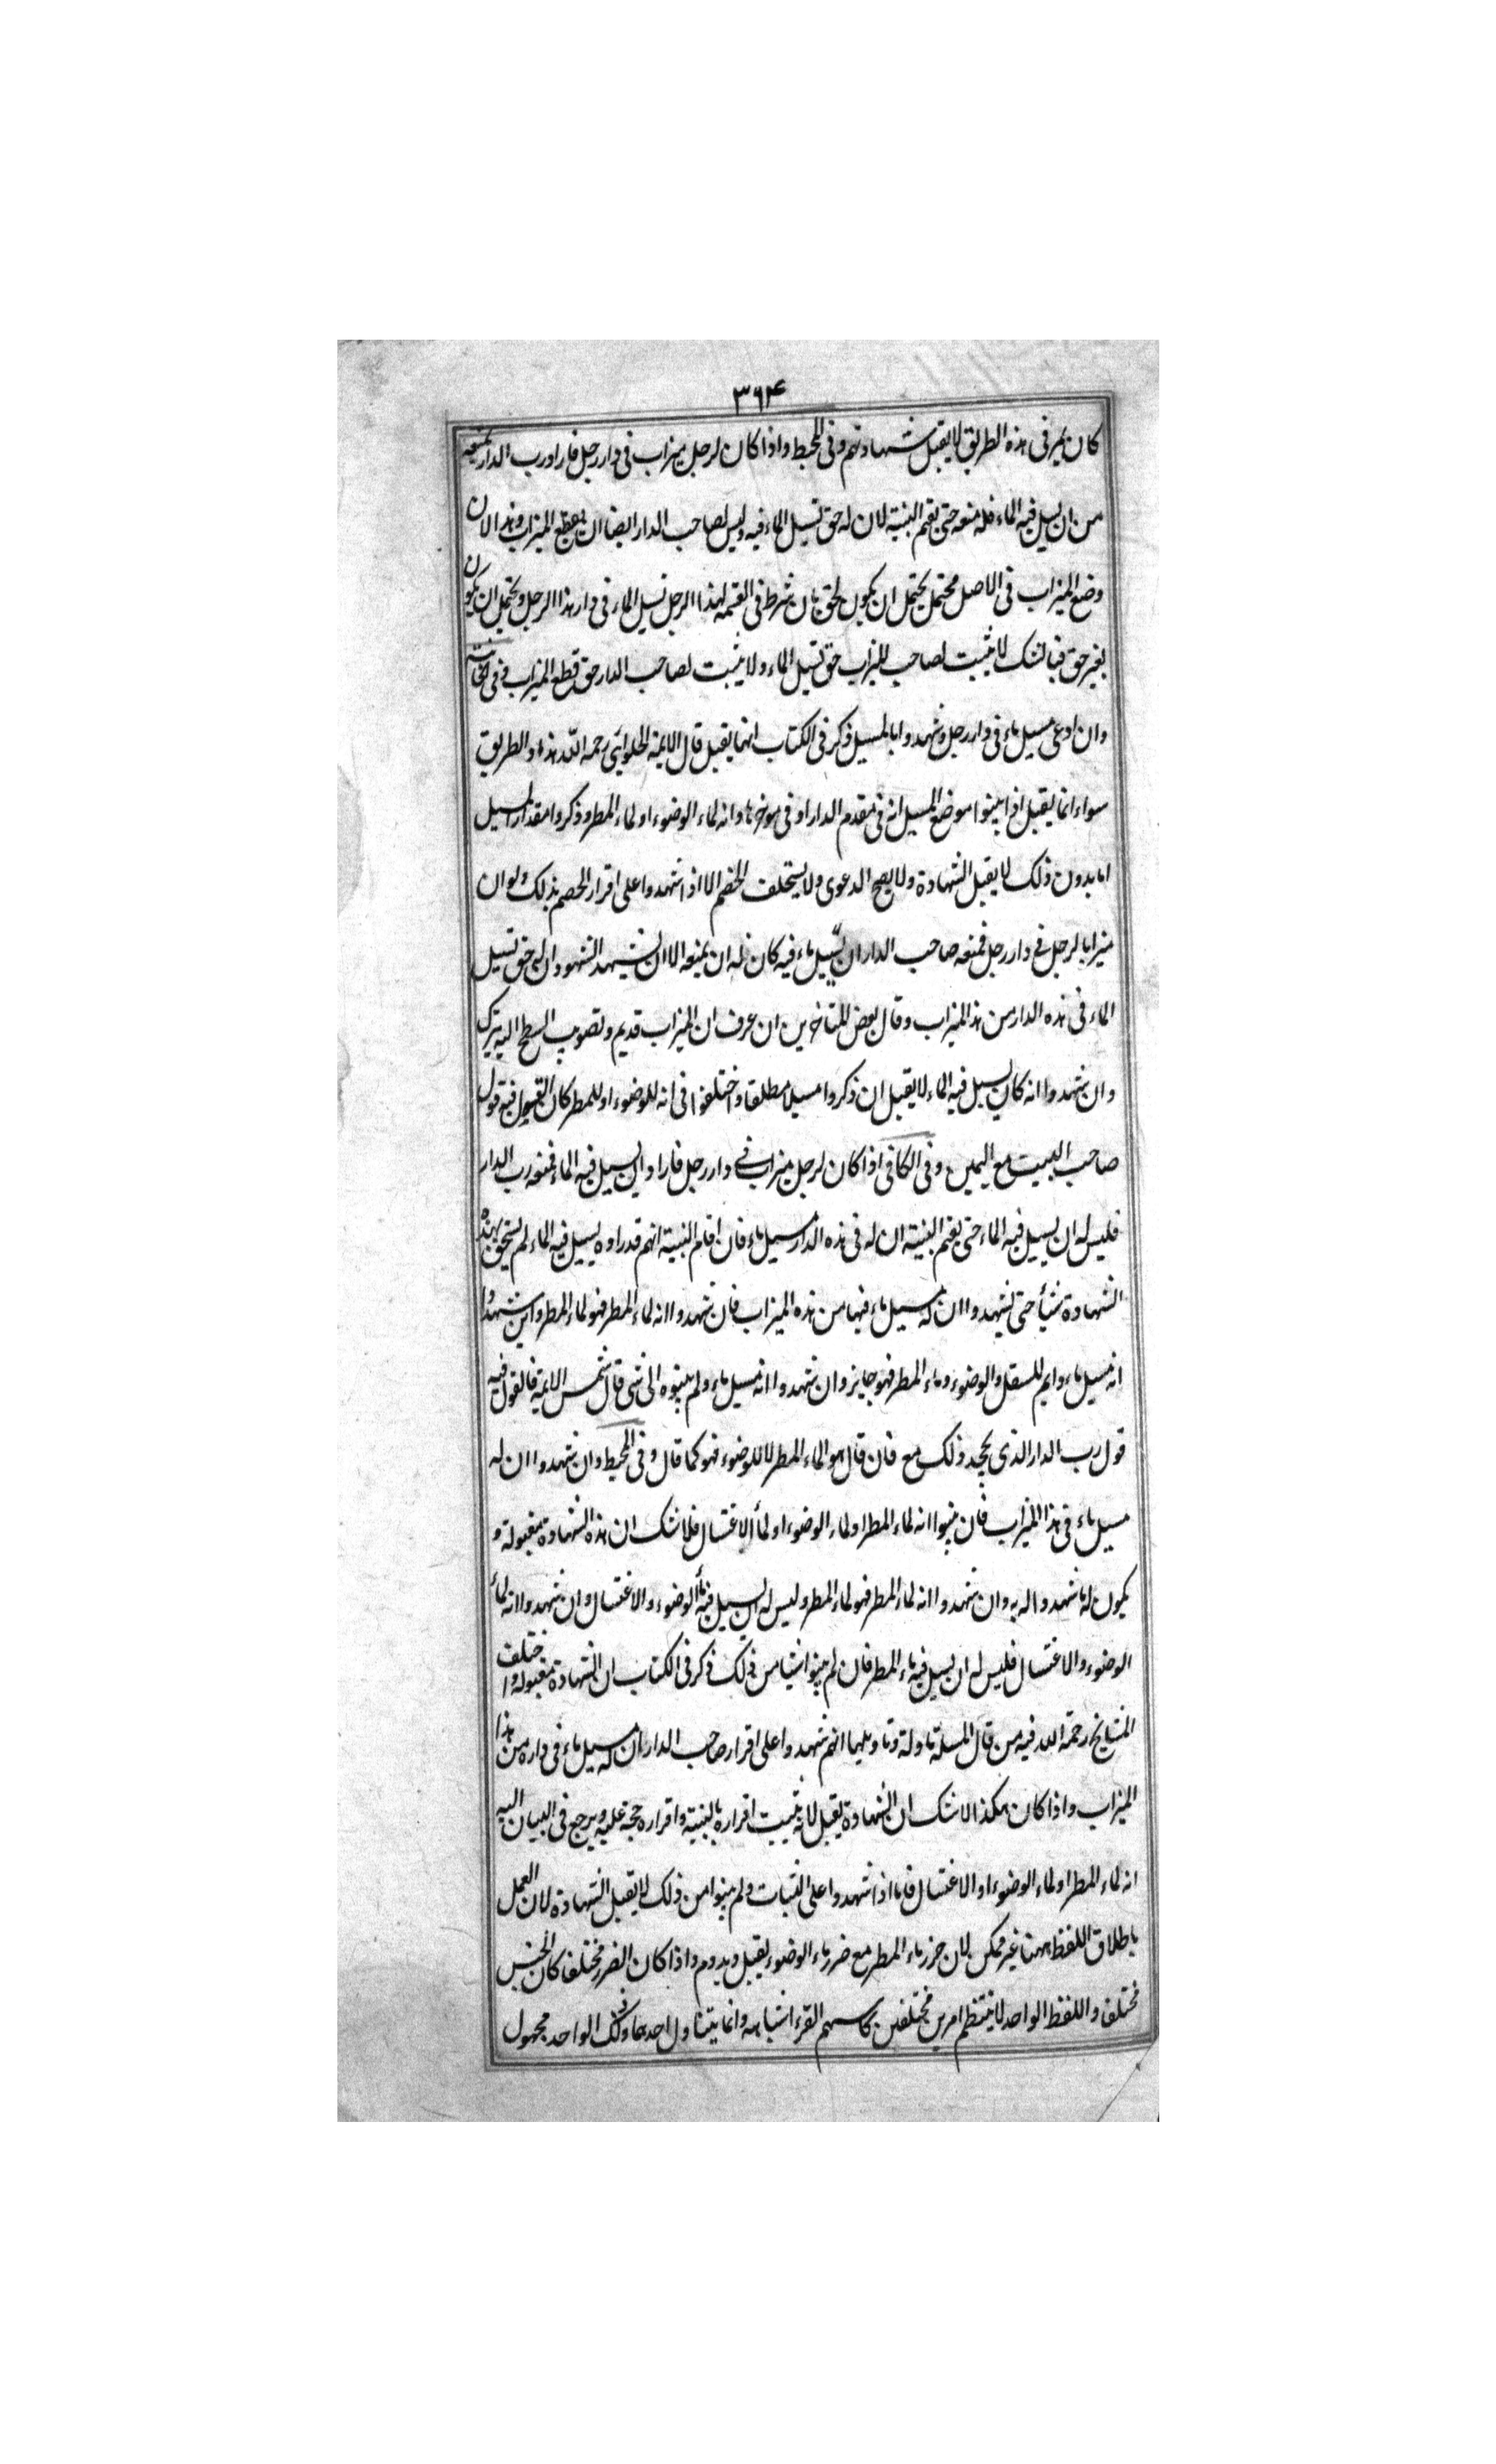 ٣٦۴
كان يمر فى هذه الطريق لا يقبل شهادتهم وفى المحيط واذا كان لرجل ميزاب فى دار رجل فاراد رب الدار يمنعه
من ان يسيل فيه الماء فله منعه حتى يقيم البينة لان له حق تسيل الماء فيه وليس لصاحب الدار ايضا ان يقطع الميزاب وهذا لان
وضع الميزاب فى الاصل محتمل يحتمل ان يكون لحق بان شرط فى القسمة لهذا الرجل تسيل الماء فى دار هذا الرجل ويحتمل ان يكون
بغير حق فبالشك لا يثبت لصاحب الميزاب حق تسيل الماء ولا يثبت لصاحب الدار حق قطع الميزاب وفى الخانية
وان ادعى مسيل ماء فى دار رجل وشهدوا بالمسيل ذكر فى الكتاب انها يقبل قال الايمة الحلوائى رحمه الله هذه والطريق
سواء انما يقبل اذا بينوا موضع المسيل انه فى مقدم الدار او فى موخرها وانه لماء الوضوء او لماء المطر وذكروا مقدار المسيل
اما بدون ذلك لا يقبل الشهادة ولا يصح الدعوى ولا يستحلف الخصم الا اذا شهدوا على اقرار الخصم بذلك ولو ان
ميزابا لرجل فى دار رجل فمنعه صاحب الدار ان يسيل ماء فيه كان له ان يمنعه الا ان يشهد الشهود ان له حق تسيل
الماء فى هذه الدار من هذ الميزاب وقال بعض المتاخرين ان عرف ان الميزاب قديم وتصويب السطح اليه يترك
وان شهدوا انه كان يسيل فيه الماء لا يقبل ان ذكروا مسيلا مطلقا واختلفوا فى انه للوضوء او للمطر كان القبول فيه قول
صاحب البيت مع اليمين وفى الكافى اذا كان لرجل ميزاب فى دار رجل فاراد ان يسيل فيه الماء فمنعه رب الدار
فليس له ان يسيل فيه الماء حتى يقيم البينة ان له فى هذه الدار مسيل ماء فان اقام البينة انهم قد راوه يسيل فيه الماء لم يستحق بهذه
الشهادة شيأ حتى يشهدوا ان له مسيل ماء فيها من هذه الميزاب فان شهدوا انه لماء المطر فهو لماء المطر وان شهدوا
انه مسيل ماء دايم للسقل والوضوء وماء المطر فهو جايز وان شهدوا انه مسيل ماء ولم يبينوه الى شى قال شمس الايمة فالقول فيه
قول رب الدار الذى يجحد ذلك مع فان قال هو لماء المطر لا للوضوء فهو كما قال وفى المحيط وان شهدوا ان له
مسيل ماء فى هذا الميزاب فان بينوا انه لماء المطر او لماء الوضوء او لماء الاغتسال فلا شك ان هذه الشهادة مقبولة و
يكون له ما شهدوا له به وان شهدوا انه لماء المطر فهو لماء المطر وليس له ان يسيل فيه ماء الوضوء والاغتسال وان شهدوا انه لماء
الوضوء والاغتسال فليس له ان يسيل فيه ماء المطر فان لم يبينوا شيا من ذلك ذكر فى الكتاب ان الشهادة مقبولة واختلف
المشايخ رحمة الله فيه من قال المسلة ماولة وتاويلها انهم شهدوا على اقرار صاحب الدار ان له مسيل ماء فى داره من هذا
الميزاب واذا كان هكذا لا شك ان الشهادة يقبل لانه يثبت اقراره بالبينة واقراره حجة عليه ويرجع فى البيان اليه
انه لماء المطر او لماء الوضوء او الاغتسال فاما اذا شهدوا على الثبات ولم يبينوا من ذلك لا يقبل الشهادة لان العمل
باطلاق اللفظ ههنا غير ممكن لان ضرر ماء المطر مع ضرر ماء الوضوء يقبل ويدوم واذا كان الضرر مختلفا كان الجنس
مختلف واللفظ الواحد لا ينتظم امرين مختلفين كاسم القرء اشباهه وانما يتناول احدهما وذلك الواحد مجهول